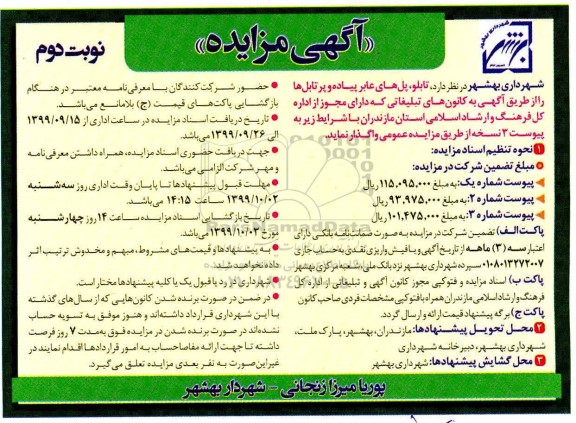 «آگهی مزایده»
نوبت دوم
شهرداری بهشهر در نظر دارد، تابلو، پل‌های عابر پیاده و پرتابل‌ها
را از طریق آگهی به کانون‌های تبلیغاتی که دارای مجوز از اداره
کل فرهنگ و ارشاد اسلامی استان مازندران با شرایط زیر به
پیوست ۳ نسخه از طریق مزایده عمومی واگذار نماید.
۱ نحوه تنظیم اسناد مزایده:
مبلغ تضمین شرکت در مزایده:
پیوست شماره یک: به مبلغ ۱۱۵.۰۹۵.۰۰۰ ریال
پیوست شماره ۲: به مبلغ ۹۳.۹۷۵.۰۰۰ ریال
پیوست شماره ۳: به مبلغ ۱۰۱.۴۷۵.۰۰۰ ریال
پاکت الف) تضمین شرکت در مزایده به صورت ضمانتنامه بانکی دارای
اعتبار سه (۳) ماهه از تاریخ آگهی و یا فیش واریزی نقدی به حساب جاری
۰۱۰۸۰۱۳۲۷۲۰۰۷ سپرده شهرداری بهشهر نزد بانک ملی، شعبه مرکزی بهشهر
پاکت ب) اسناد مزایده و فتوکپی مجوز کانون آگهی و تبلیغاتی از اداره کل
فرهنگ و ارشاد اسلامی مازندران همراه با فتوکپی مشخصات فردی صاحب کانون
پاکت ج) برگه پیشنهاد قیمت ارائه و ارسال گردد.
۲ محل تحویل پیشنهادها: مازندران، بهشهر، پارک ملت،
شهرداری بهشهر، دبیرخانه شهرداری
۳ محل گشایش پیشنهادها: شهرداری بهشهر
حضور شرکت‌کنندگان یا معرفی‌نامه معتبر در هنگام
بازگشایی پاکت‌های قیمت (ج) بلامانع می‌باشد.
تاریخ دریافت اسناد مزایده در ساعت اداری از ۱۳۹۹/۰۹/۱۵
الی ۱۳۹۹/۰۹/۲۶ می‌باشد.
جهت دریافت حضوری اسناد مزایده، همراه داشتن معرفی‌نامه
و مهر شرکت الزامی می‌باشد.
مهلت قبول پیشنهادها تا پایان وقت اداری روز سه‌شنبه
۱۳۹۹/۱۰/۰۲ ساعت ۱۴:۱۵ می‌باشد.
تاریخ بازگشایی اسناد مزایده ساعت ۱۴ روز چهارشنبه
مورخ ۱۳۹۹/۱۰/۰۳ می‌باشد.
به پیشنهادها و قیمت‌های مشروط، مبهم و مخدوش ترتیب اثر
داده نخواهد شد.
شهرداری در رد یا قبول یک یا کلیه پیشنهادها مختار است.
در ضمن در صورت برنده شدن کانون‌هایی که از سال‌های گذشته
با این شهرداری قرارداد داشته‌اند و هنوز موفق به تسویه حساب
نشده‌اند در صورت برنده شدن در مزایده فوق به‌مدت ۷ روز فرصت
داشته تا جهت ارائه مفاصاحساب به امور قراردادها اقدام نمایند در
غیر این‌صورت به نفر بعدی مزایده تعلق می‌گیرد.
پوریا میرزا زنجانی – شهردار بهشهر